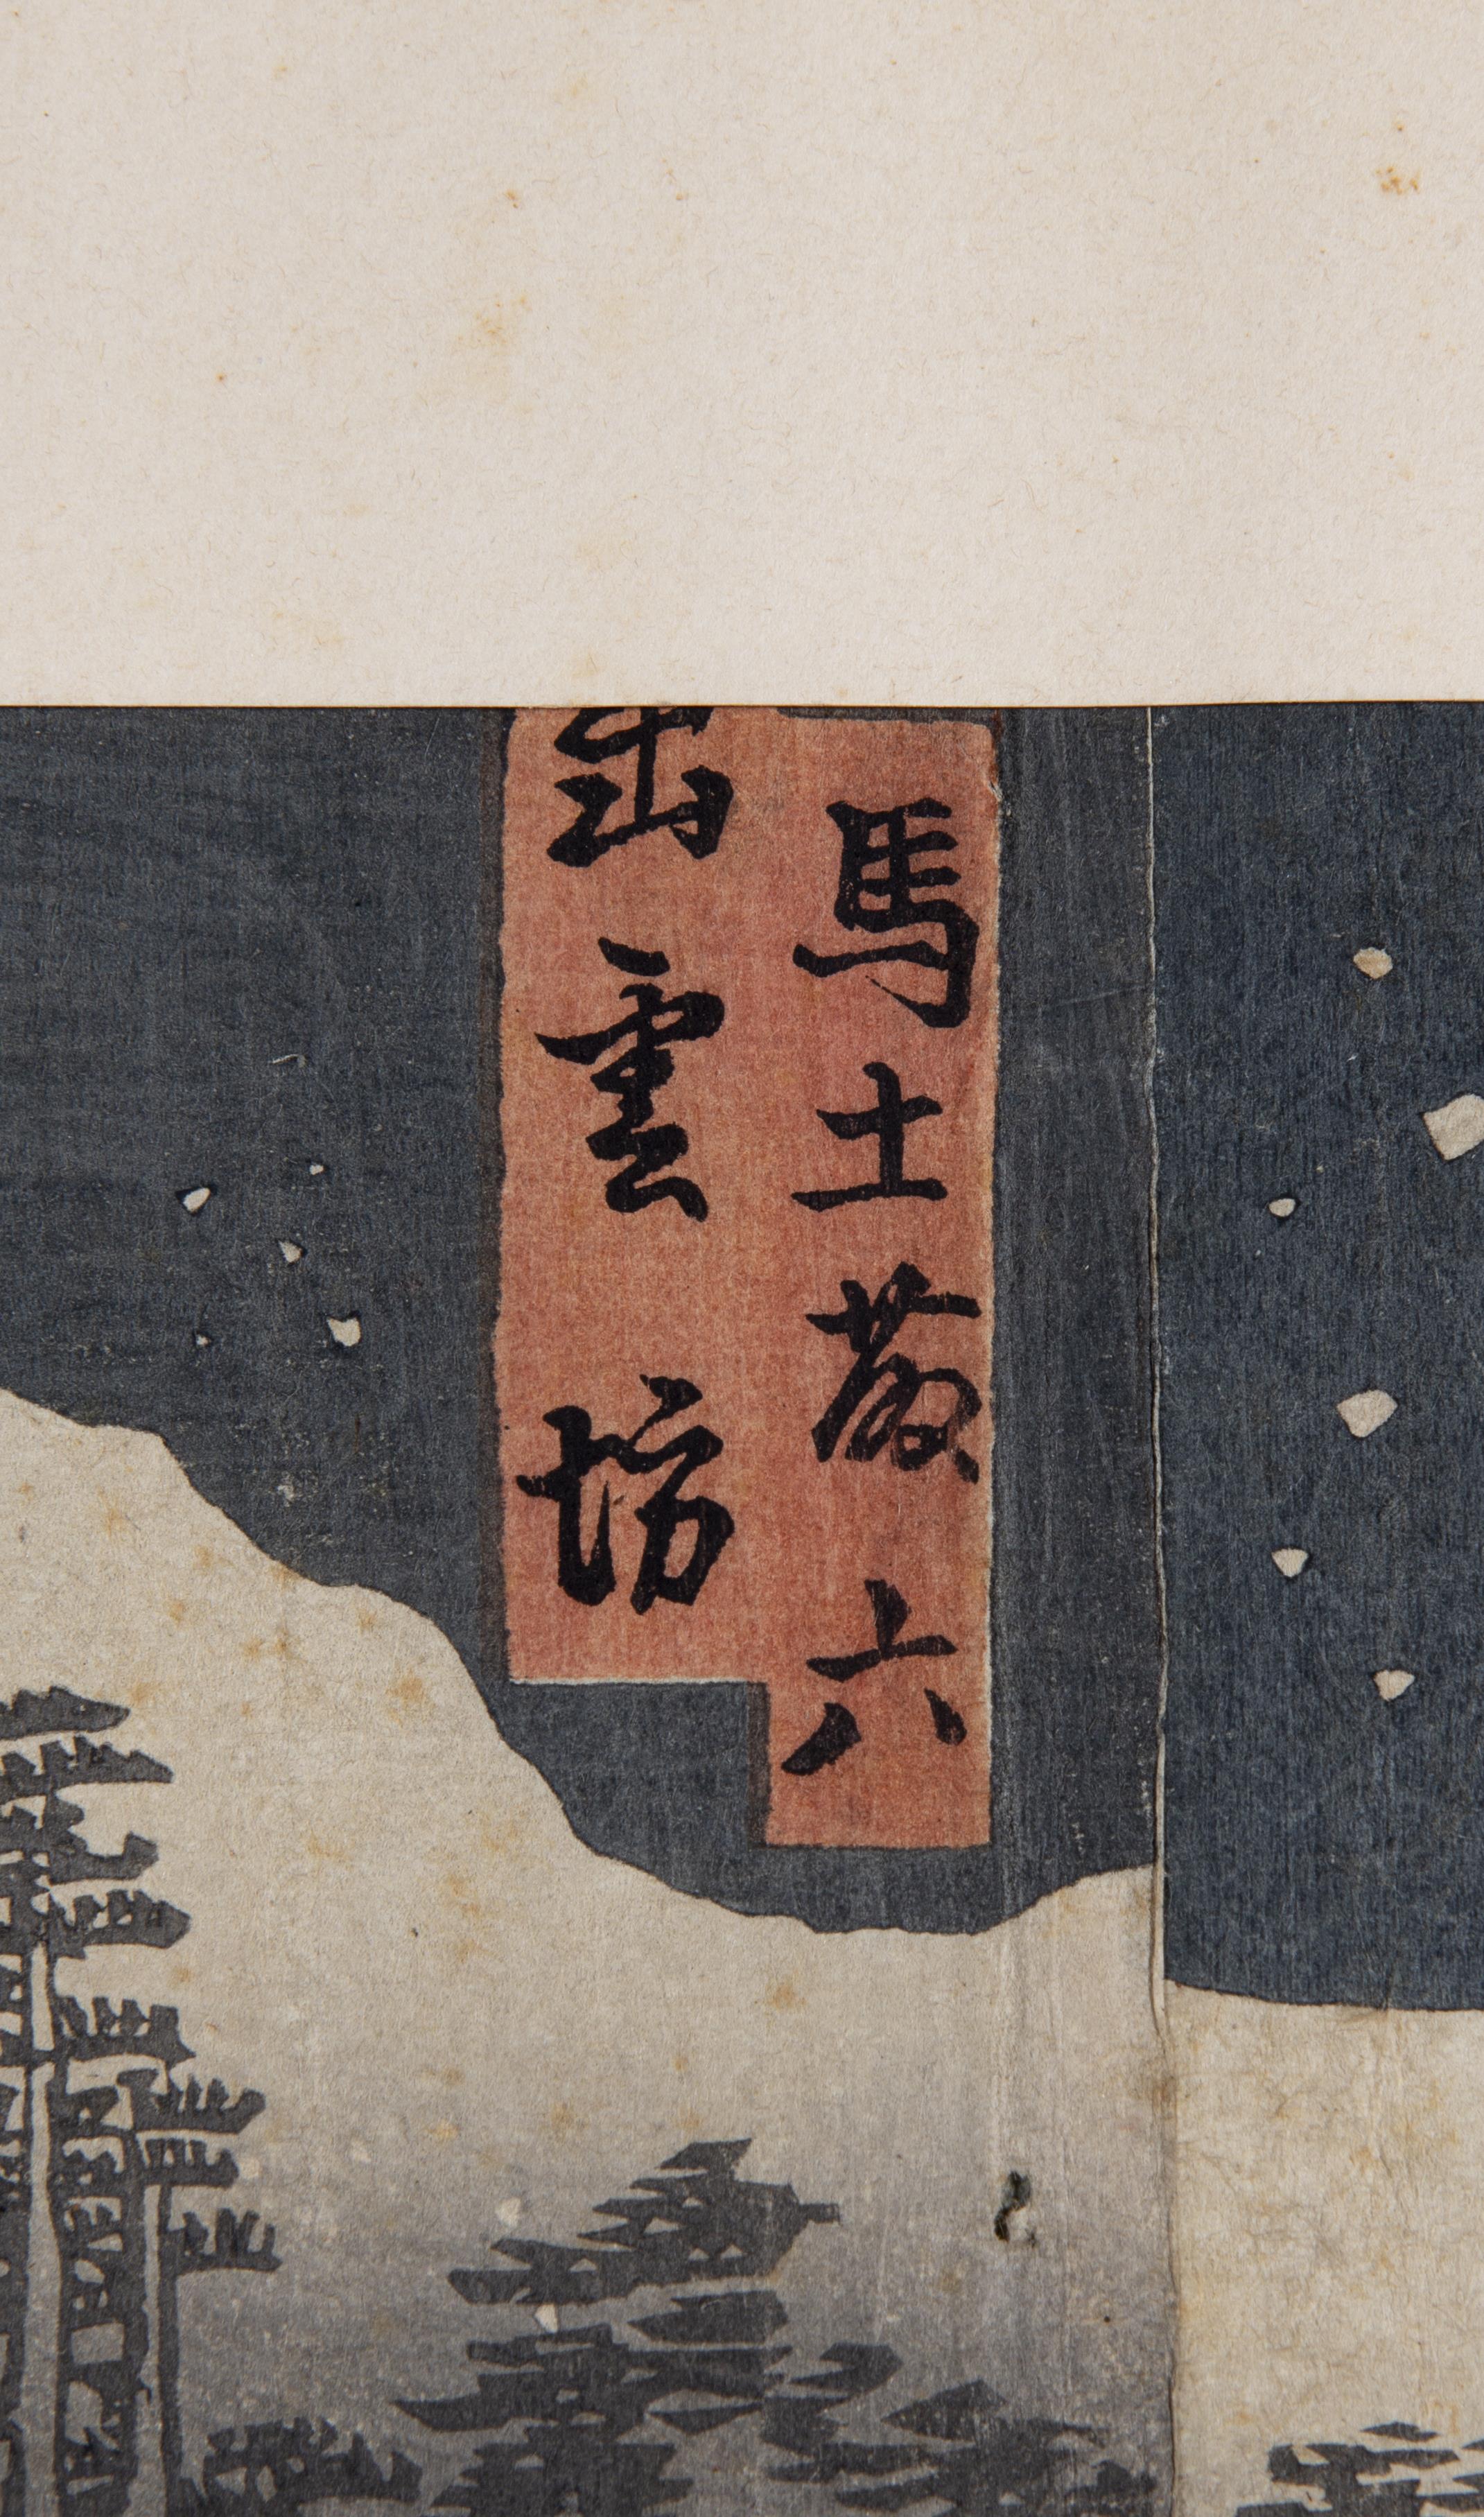 馬士藤六
出雲坊